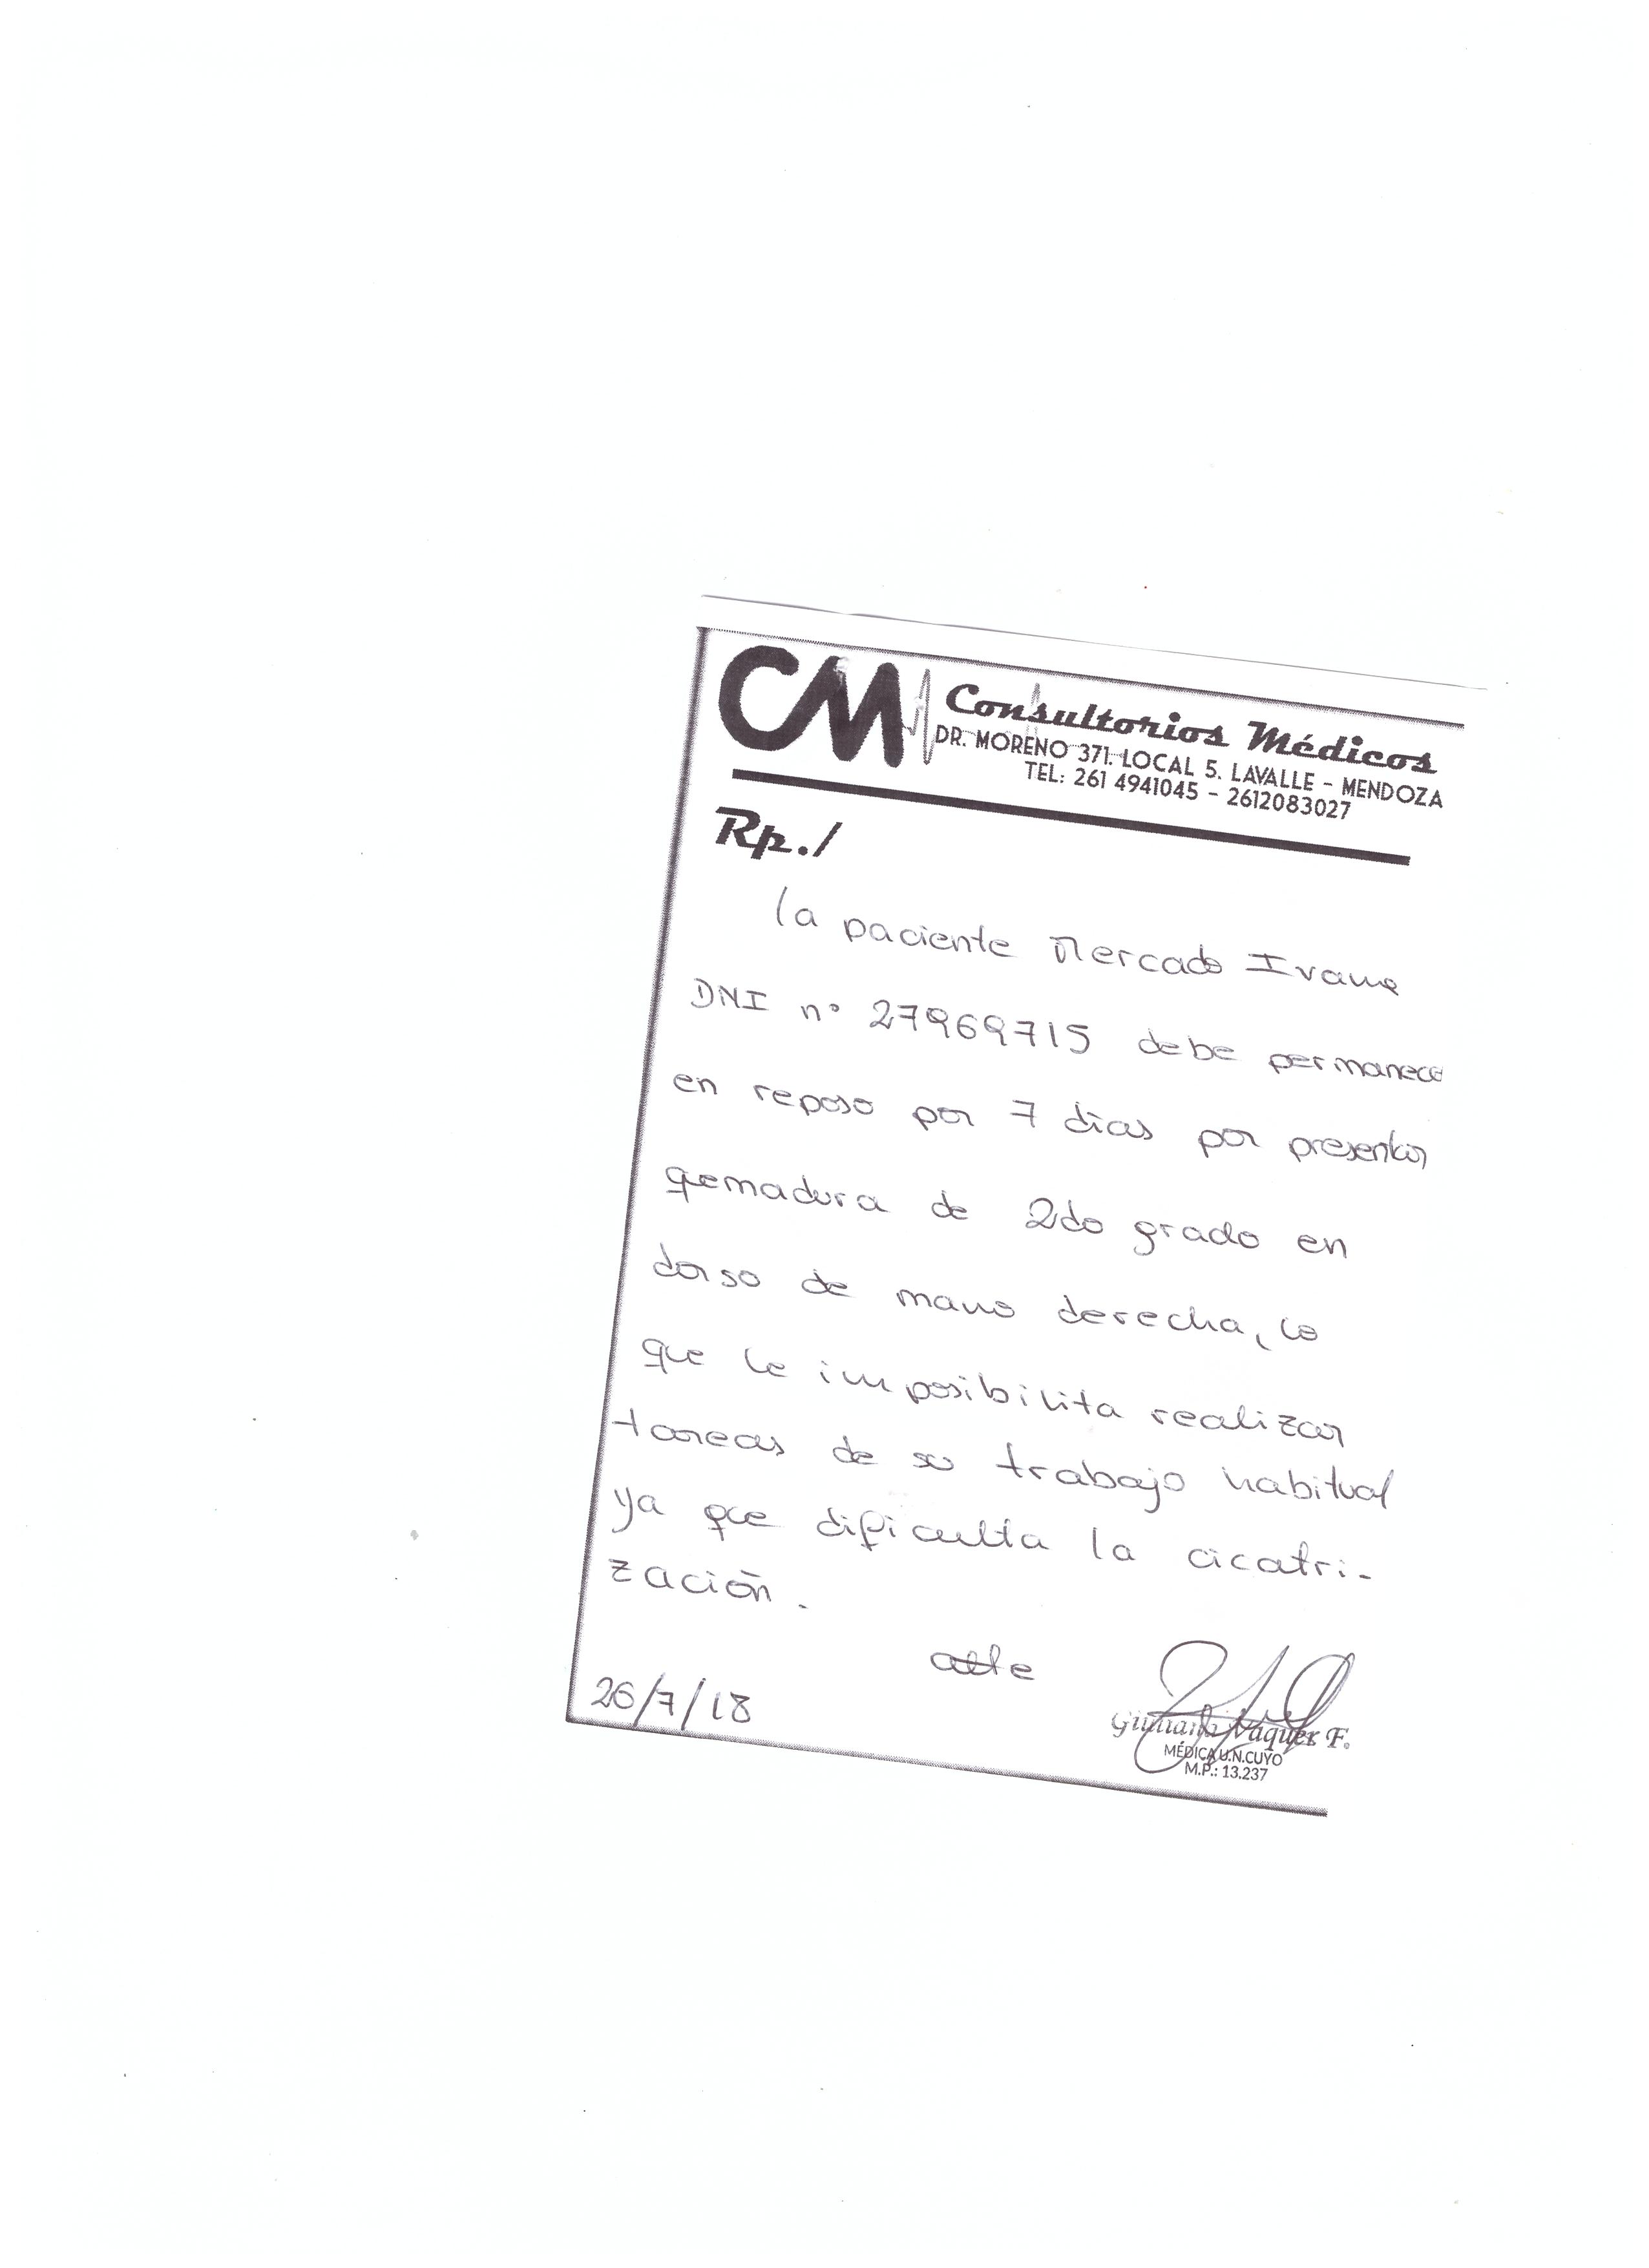 CM Consultorios Médicos
DR. MORENO 371. LOCAL 5. LAVALLE - MENDOZA
TEL: 261 4941045 - 2612083027
Rp./
la paciente Mercado Ivana
DNI nº 27969715 debe permanecer
en reposo por 7 dias por presentar
quemadura de 2do grado en
dorso de mano derecha, lo
que le imposibilita realizar
tareas de su trabajo habitual
ya que dificulta la cicatri-
zación.
atte
26/7/18
Vaquer F.
MÉDICA U.N.CUYO
M.P.: 13.237